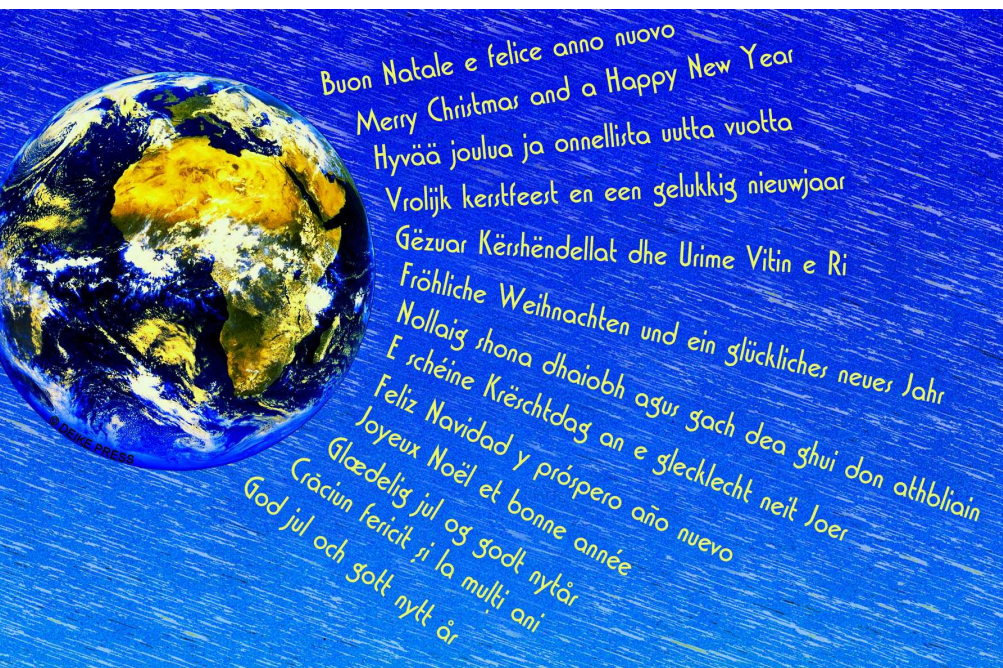 Buon Natale e felice anno nuovo
Merry Christmas and a Happy New Year
Hyvää joulua ja onnellista uutta vuotta
Vrolijk kerstfeest en een gelukkig nieuwjaar
Gëzuar Kërshëndellat dhe Urime Vitin e Ri
Fröhliche Weihnachten und ein glückliches neues Jahr
Nollaig shona dhaoibh agus gach dea ghui don athbliain
E schéine Krëschtdag an e glecklecht neit Joer
Feliz Navidad y próspero año nuevo
Joyeux Noël et bonne année
Glædelig jul og godt nytår
Crăciun fericit și la mulți ani
God jul och gott nytt år
© DEIKE PRESS